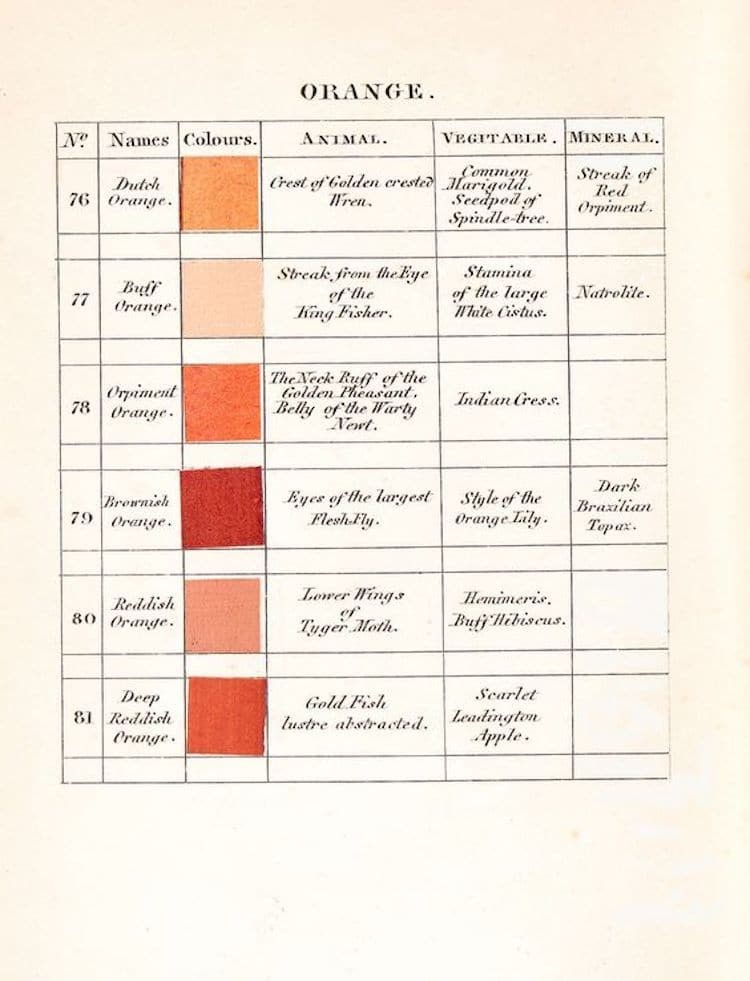 ORANGE.
Nº Names Colours. ANIMAL. VEGITABLE. MINERAL.
76
Dutch
Orange.
Crest of Golden crested
Wren.
Common
Marigold.
Seedpod of
Spindle-tree.
Streak of
Red
Orpiment.
77
Buff
Orange.
Streak from the Eye
of the
King Fisher.
Stamina
of the large
White Cistus.
Natrolite.
78
Orpiment
Orange.
The Neck Ruff of the
Golden Pheasant,
Belly of the Warty
Newt.
Indian Cress.
79
Brownish
Orange.
Eyes of the largest
Flesh Fly.
Style of the
Orange Lily.
Dark
Brazilian
Topaz.
80
Reddish
Orange.
Lower Wings
of
Tyger Moth.
Hemimeris.
Buff Hibiscus.
81
Deep
Reddish
Orange.
Gold Fish
lustre abstracted.
Scarlet
Leadington
Apple.